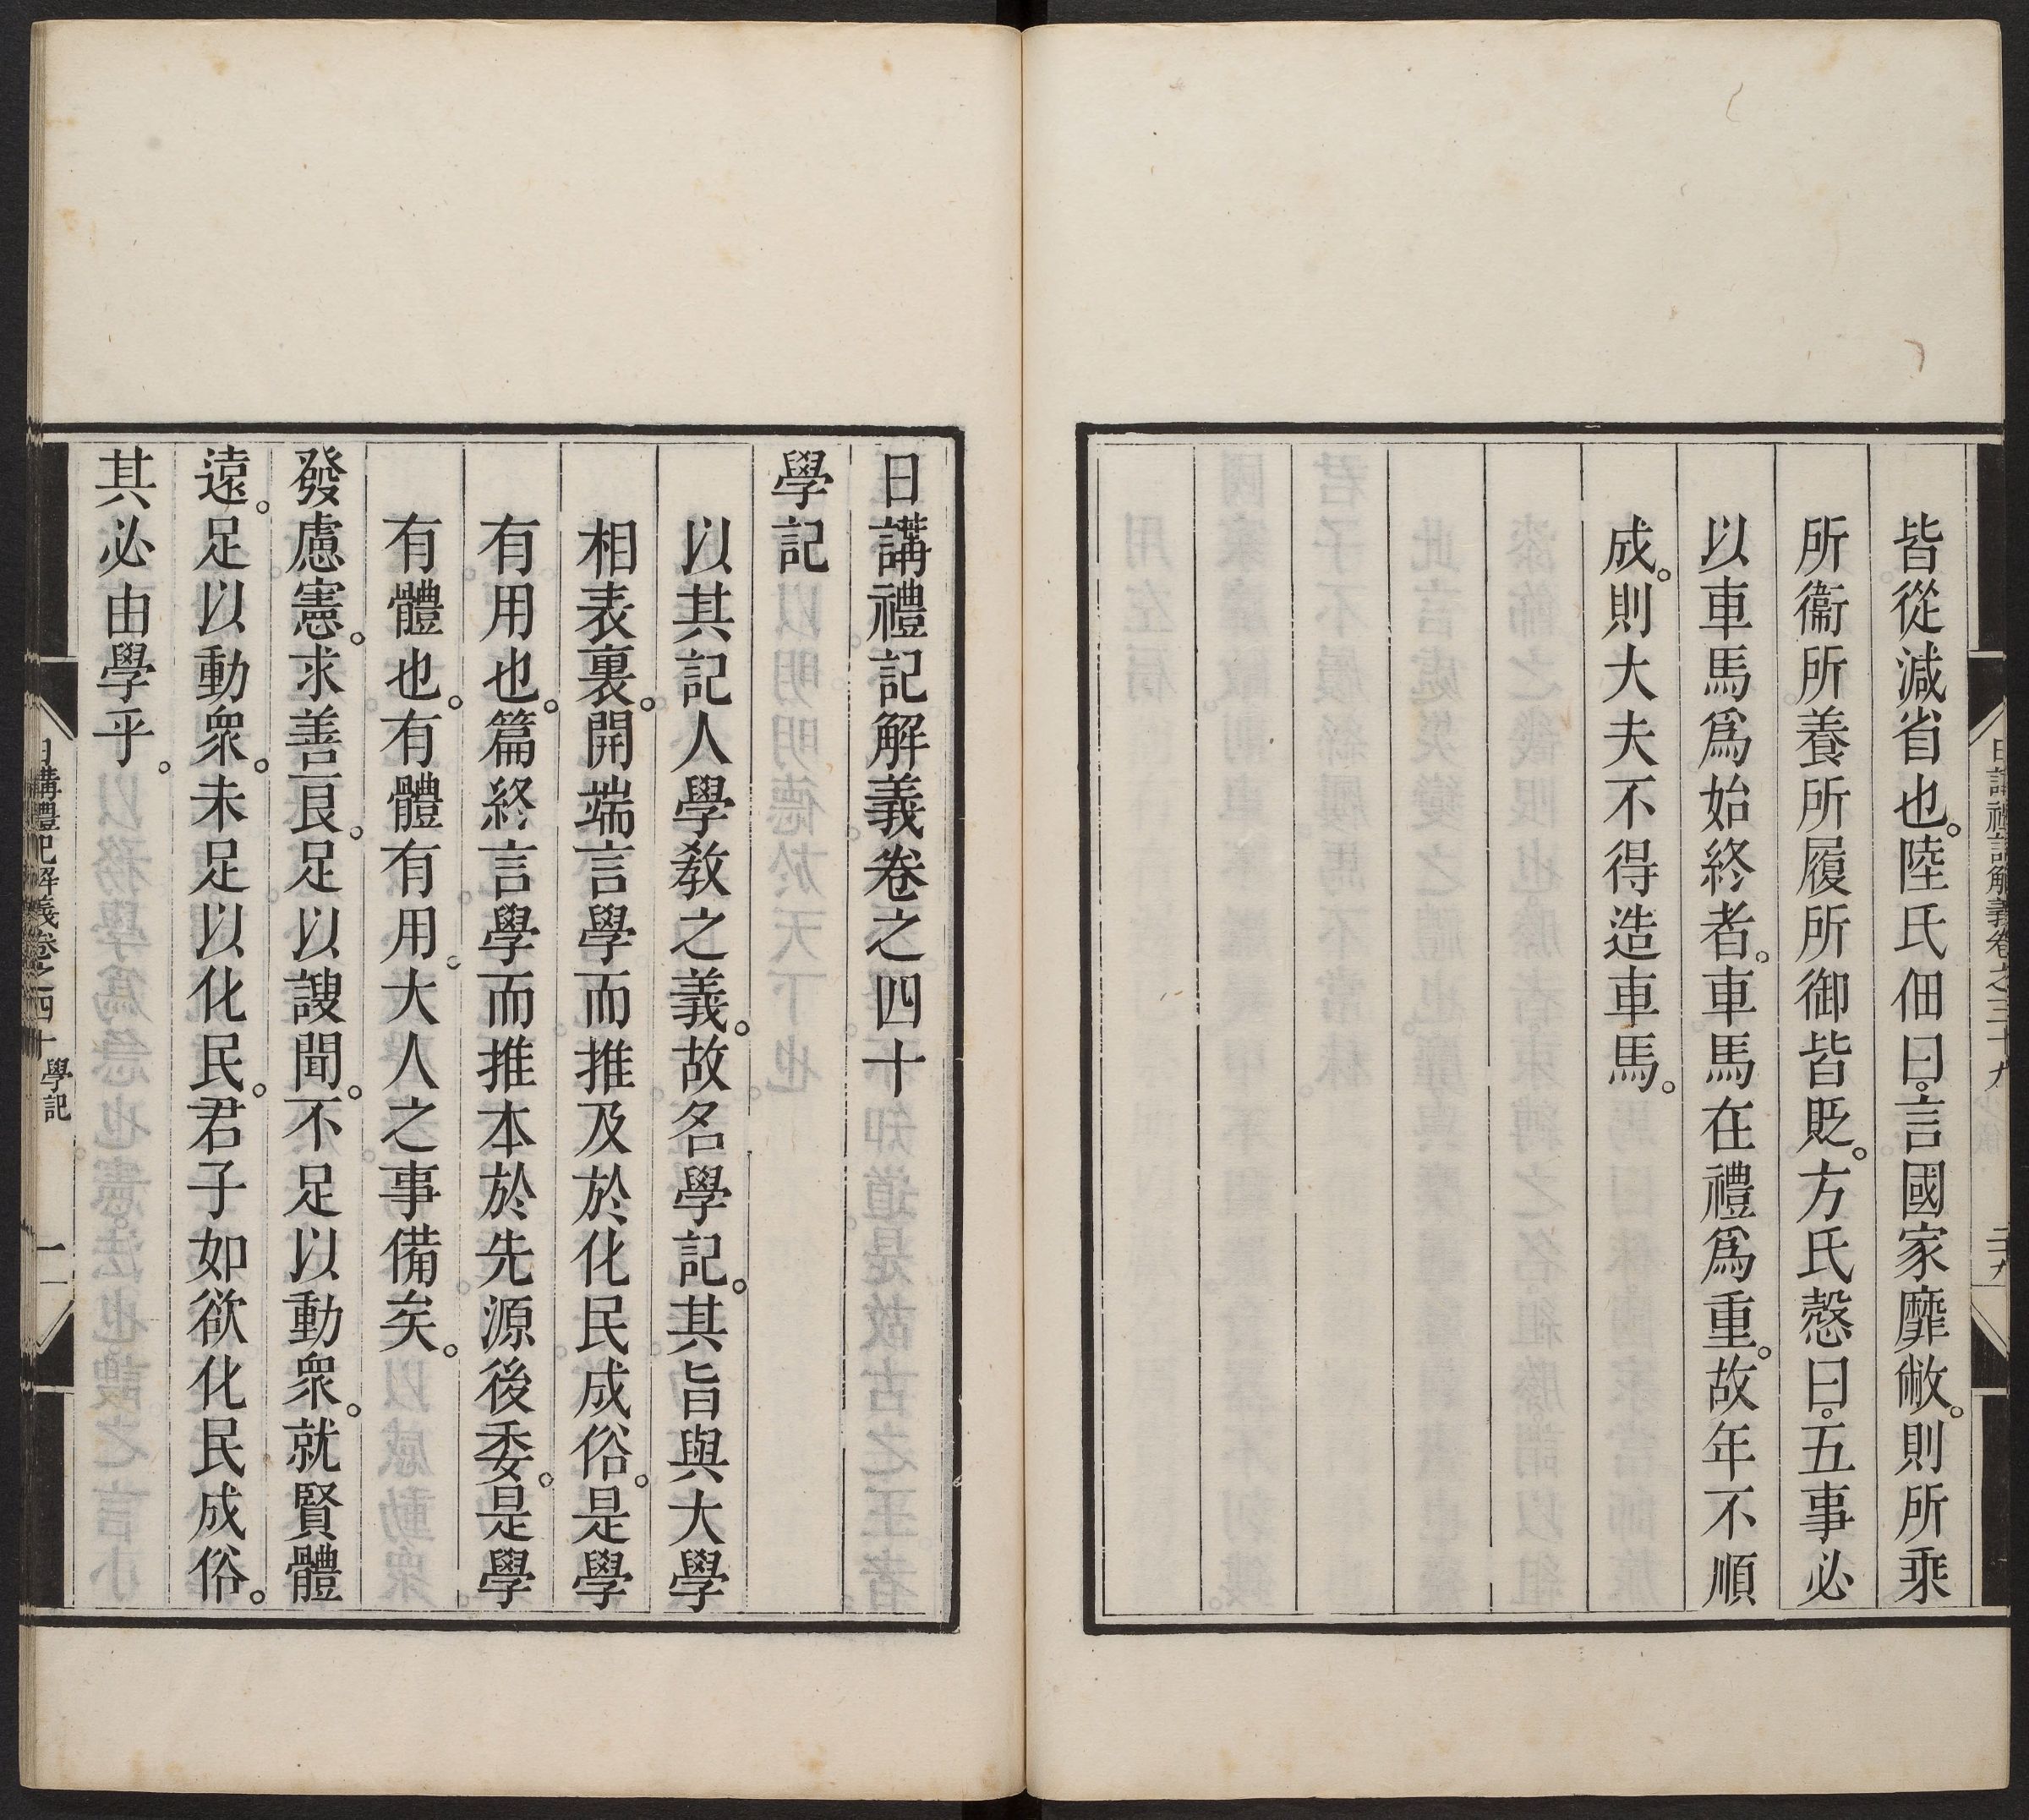 皆從減省也。陸氏佃曰。言國家靡敝。則所乘
所衞所養所履所御皆貶。方氏慤曰。五事必
以車馬爲始終者。車馬在禮爲重。故年不順
成。則大夫不得造車馬。
日講禮記解義卷之四十
學記
以其記人學教之義。故名學記。其旨與大學
相表裏。開端言學而推及於化民成俗。是學
有用也。篇終言學而推本於先源後委。是學
有體也。有體有用。大人之事備矣。
發慮憲。求善良。足以謏聞。不足以動衆。就賢體
遠。足以動衆。未足以化民。君子如欲化民成俗。
其必由學乎。
日講禮記解義卷之四十 學記 一